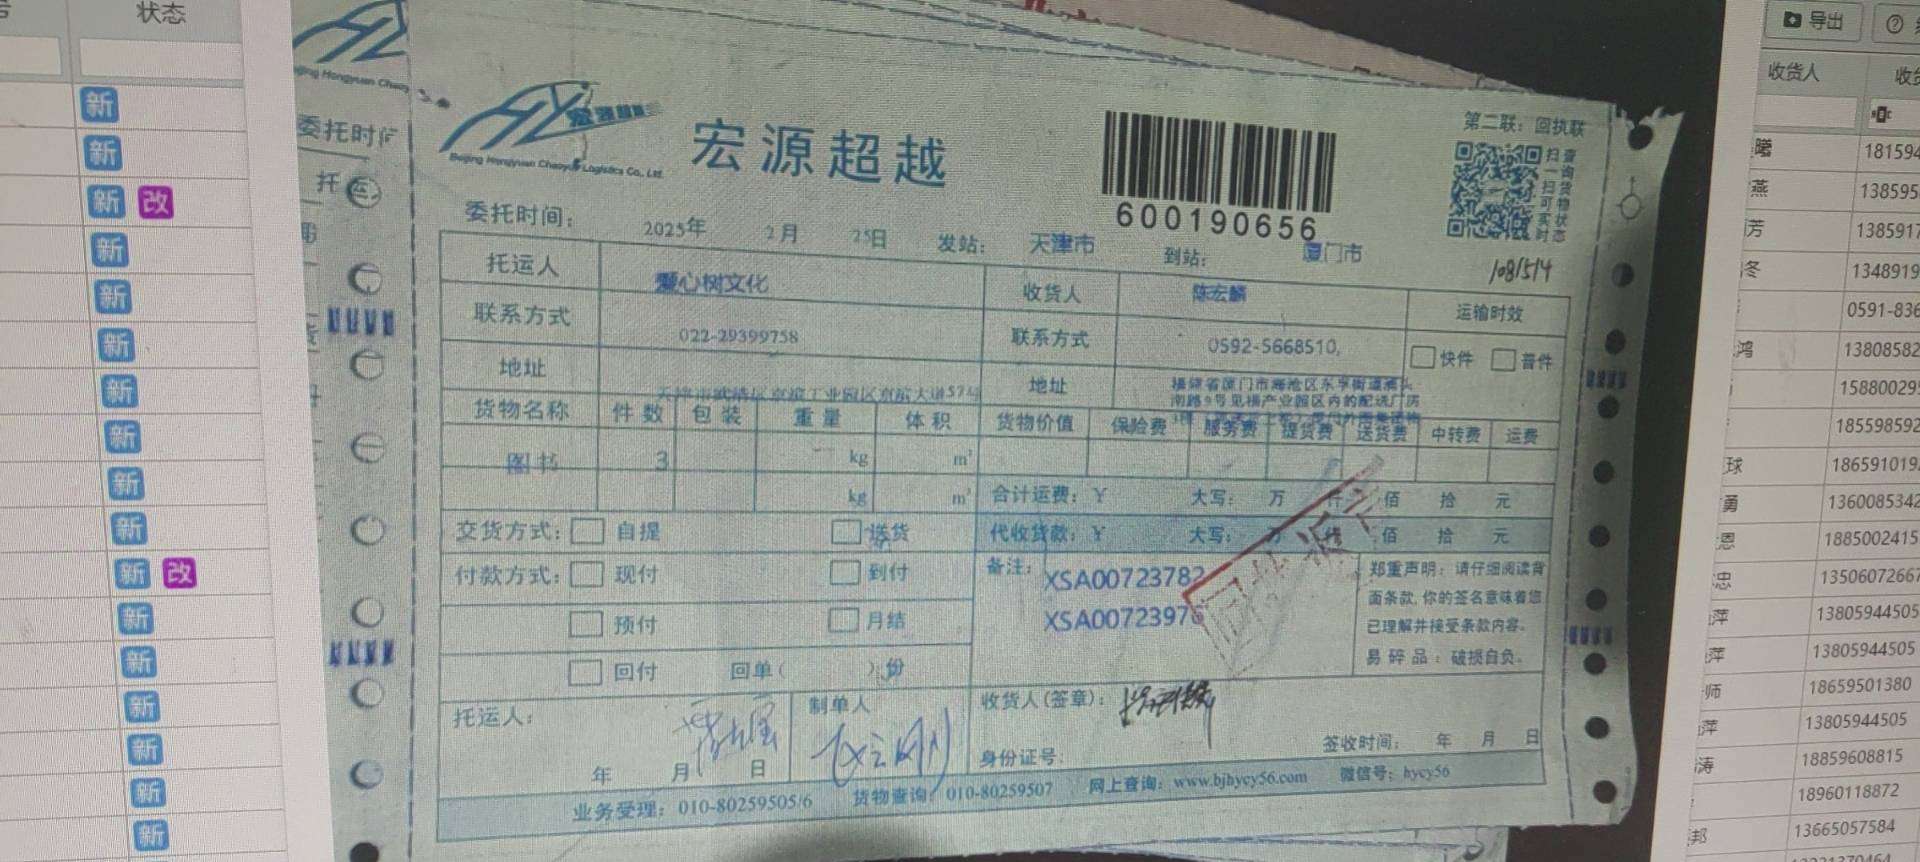 状态
导出
收货人
新
新
新 改
新
新
新
新
新
新
新
新 改
新
新
新
新
新
新
委托时间
托运
宏源超越
Beijing Hongyuan Chaoyue Logistics Co., Ltd.
宏源超越
600190656
第二联：回执联
扫一扫可实时
查询货物状态
委托时间： 2025年 2月 25日 发站： 天津市 到站： 厦门市
1081514
托运人 爱心树文化 收货人 陈宏麟 运输时效
联系方式 022-29399758 联系方式 0592-5668510, 快件 普件
地址 天津市武清区京滨工业园区京滨大道57号 地址 福建省厦门市海沧区东孚街道
南路9号见福产业园区内的配送厂房
货物名称 件数 包装 重量 体积 货物价值 保险费 服务费 提货费 送货费 中转费 运费
图书 3 kg m³
kg m³ 合计运费：￥ 大写： 万 仟 佰 拾 元
交货方式： 自提 送货 代收货款：￥ 大写： 万 仟 佰 拾 元
付款方式： 现付 到付 备注： XSA00723782
预付 月结 XSA00723976
回付 回单（ ）份
郑重声明：请仔细阅读背
面条款，你的签名意味着您
已理解并接受条款内容。
易碎品：破损自负。
托运人： 制单人 收货人(签章)：
年 月 日 身份证号： 签收时间： 年 月 日
业务受理：010-80259505/6 货物查询：010-80259507 网上查询：www.bjhycy56.com 微信号：hycy56
曦 181594
燕 138595
芳 138591
冬 1348919
0591-836
鸿 13808582
15880029
185598592
球 186591019
勇 1360085342
恩 1885002415
忠 1350607266
萍 13805944505
萍 13805944505
师 18659501380
萍 13805944505
涛 18859608815
18960118872
邦 13665057584